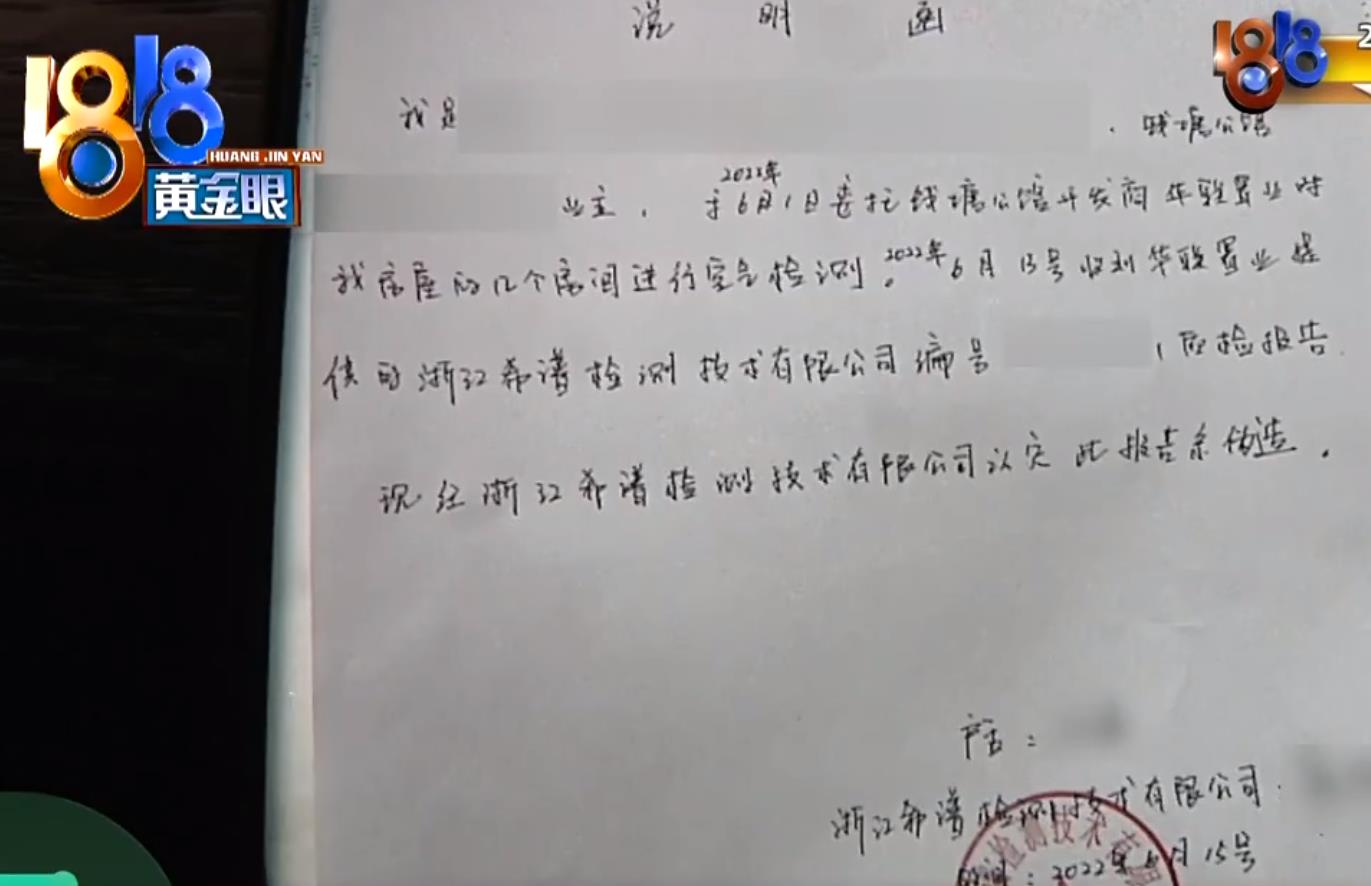 说明函
1818
HUANG JIN YAN
黄金眼
1818
2
我是
，钱塘公馆
业主，于2022年6月1日委托钱塘公馆开发商华联置业对
我房屋的12个房间进行空气检测。2022年6月13号收到华联置业提
供的浙江希谱检测技术有限公司编号
应检报告
现经浙江希谱检测技术有限公司认定此报告系伪造。
户主：
浙江希谱检测技术有限公司：
检测技术有限
时间：2022年6月15号